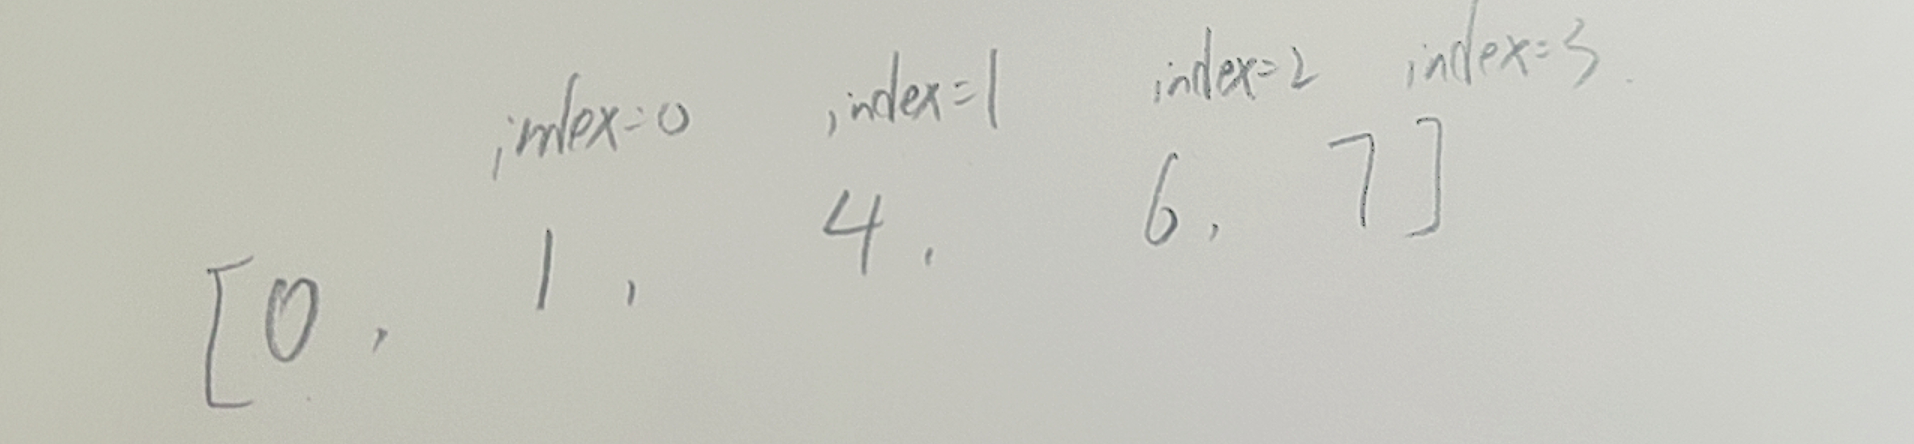 index=0 index=1 index=2 index=3
[0, 1, 4, 6, 7]